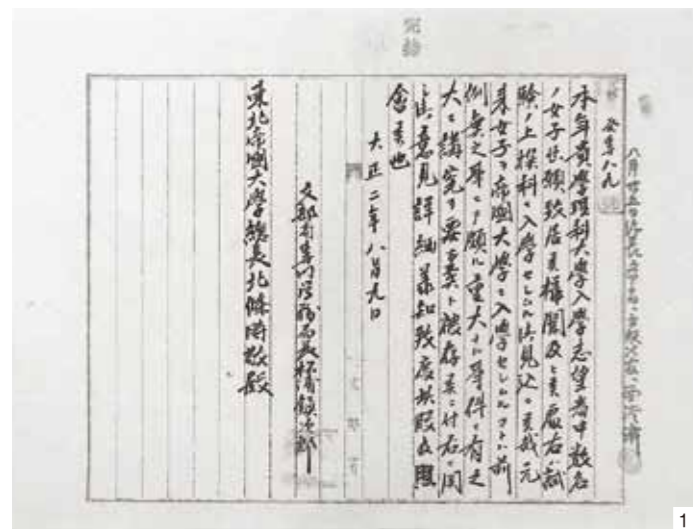 本年貴學理科大學入學志望者中数名
ノ女子出願致居候様聞及ヒ候處右ハ試
験ノ上撰科ニ入學セシムル御見込ニ候哉元
来女子ヲ帝國大學ニ入學セシムルコトハ前
例無之事ニテ頗ル重大ナル事件ニ有之
大ニ講究ヲ要シ候義ト被存候ニ付右ニ関
シ御意見詳細承知致度此段及照
會候也
大正二年八月九日
文部省専門学務局長松浦鎮次郎
東北帝國大學總長北條時敬殿
1